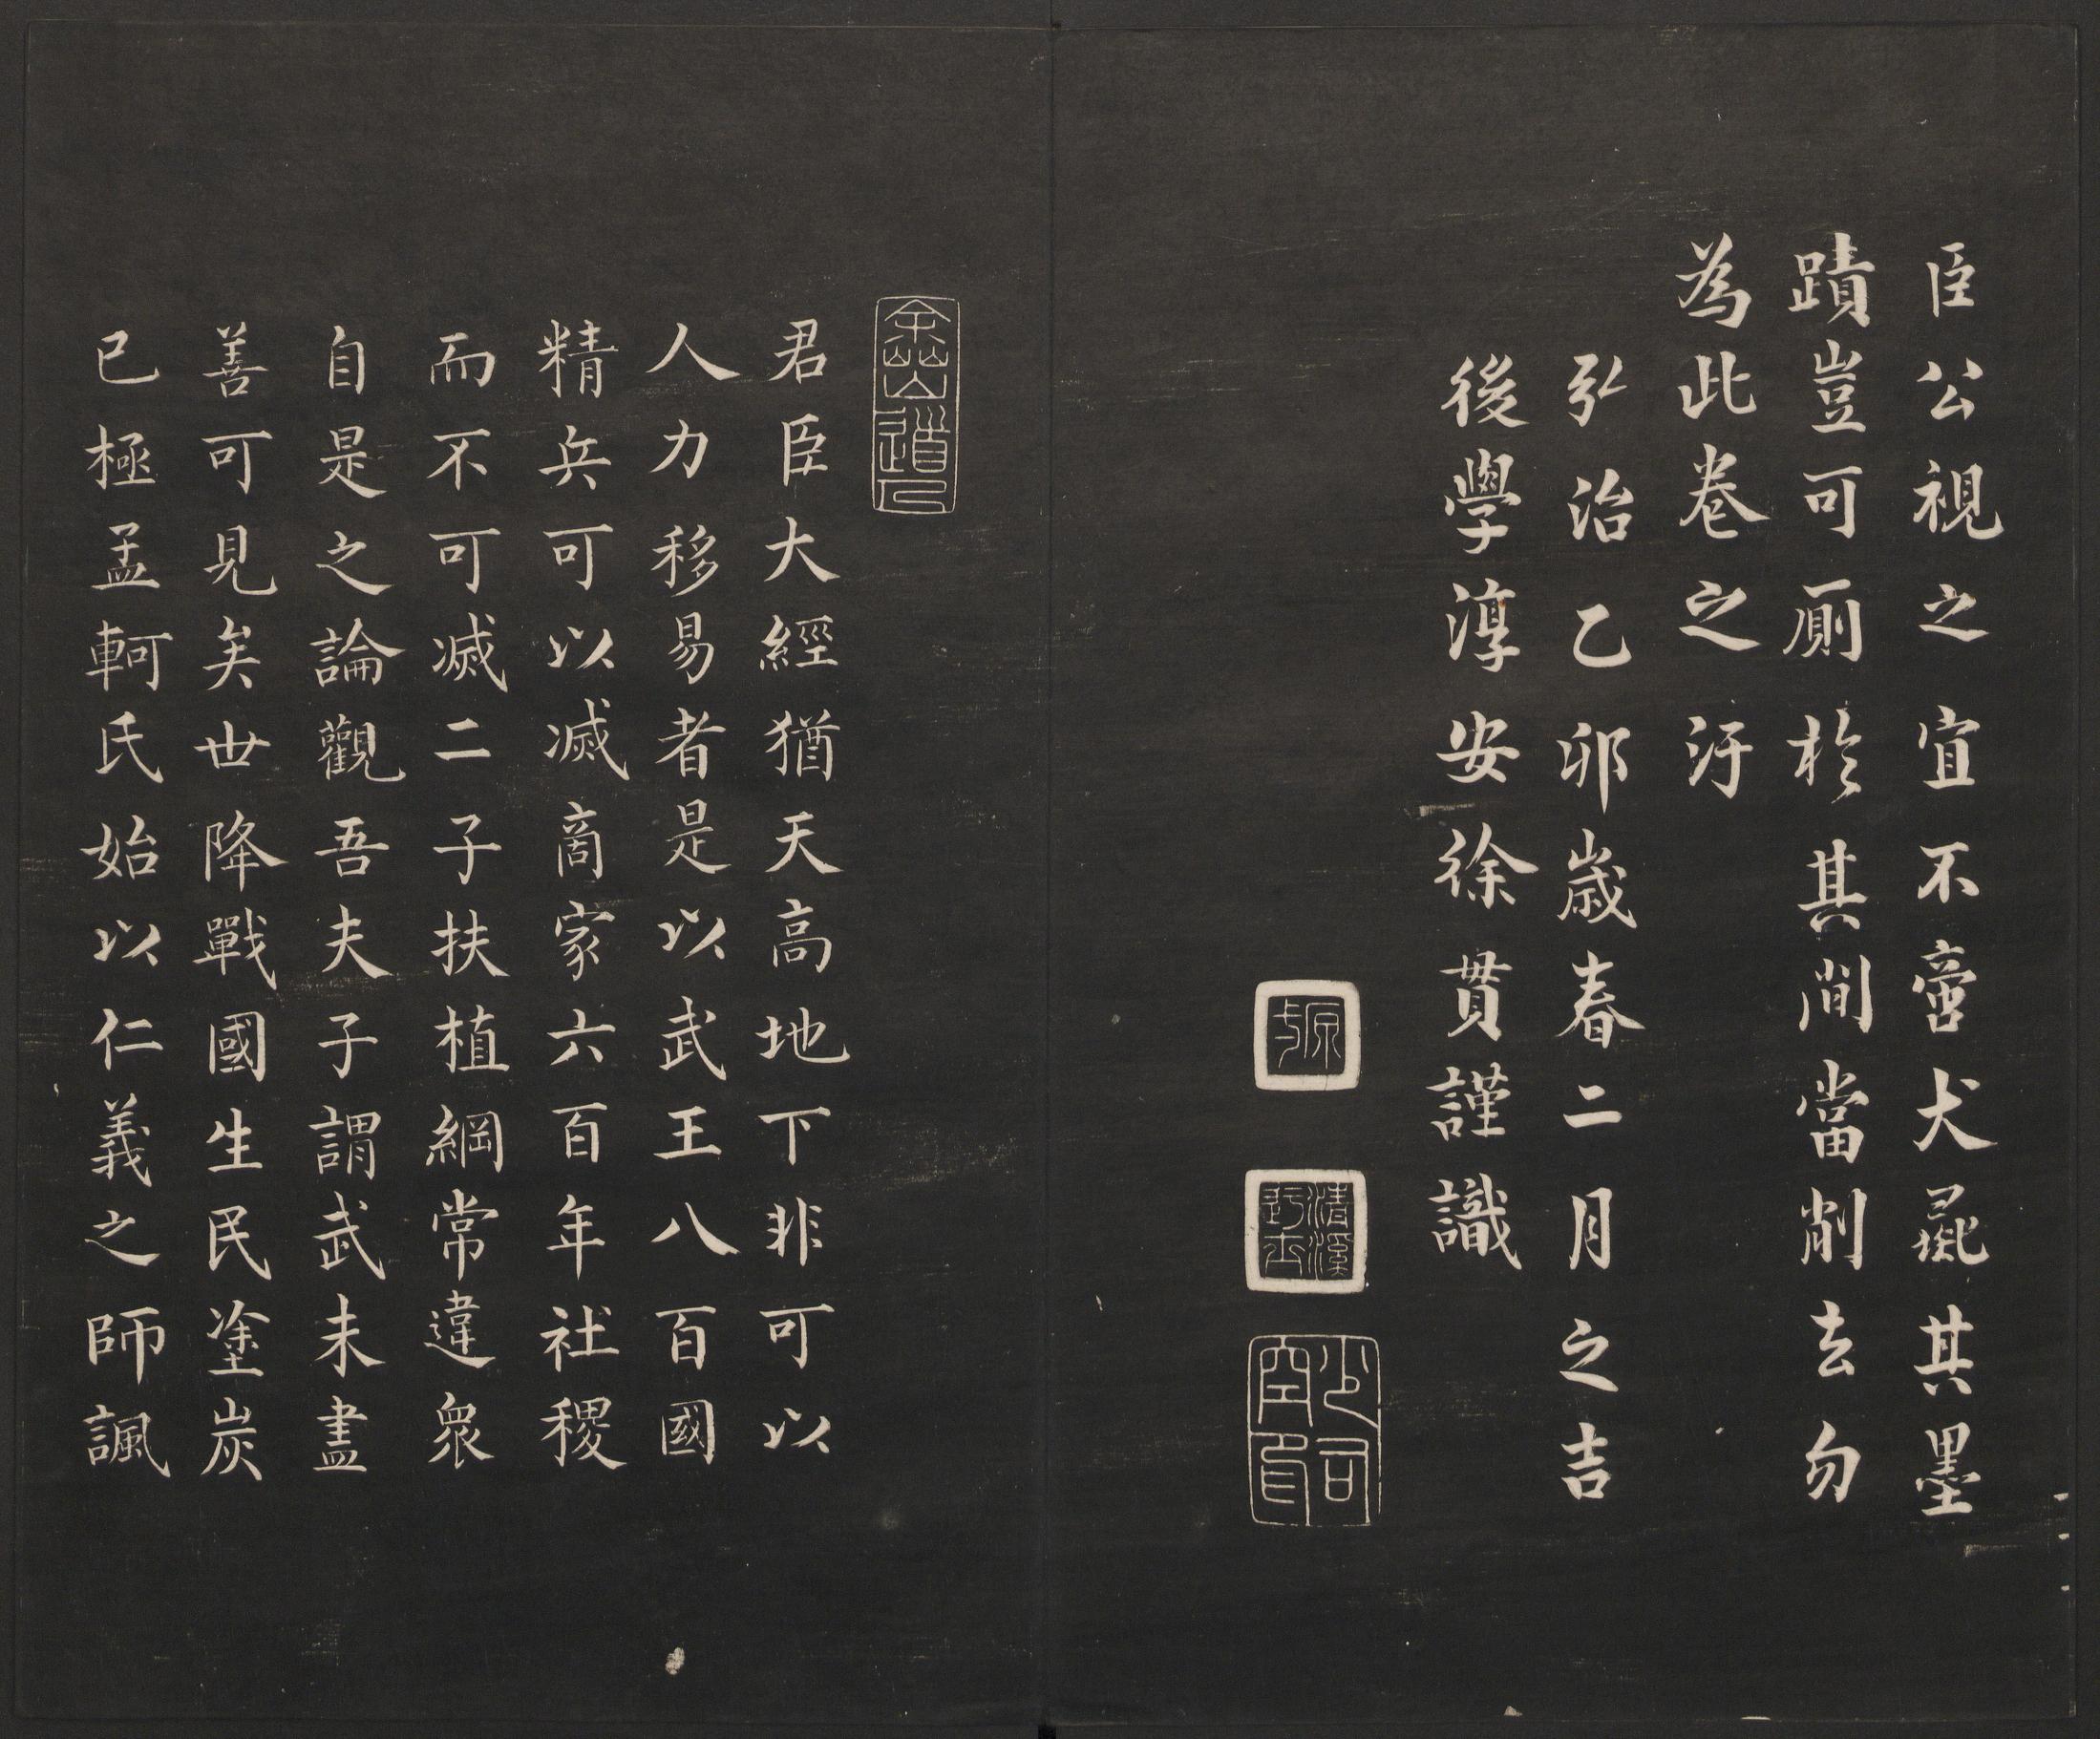 臣公視之宜不啻犬彘其墨
蹟豈可廁於其間當削去勿
為此卷之汙
弘治乙卯歲春二月之吉
後學淳安徐貫謹識
清溪
少司空印
君臣大經猶天高地下非可以
人力移易者是以武王八百國
精兵可以滅商家六百年社稷
而不可滅二子扶植綱常違衆
自是之論觀吾夫子謂武未盡
善可見矣世降戰國生民塗炭
已極孟軻氏始以仁義之師諷